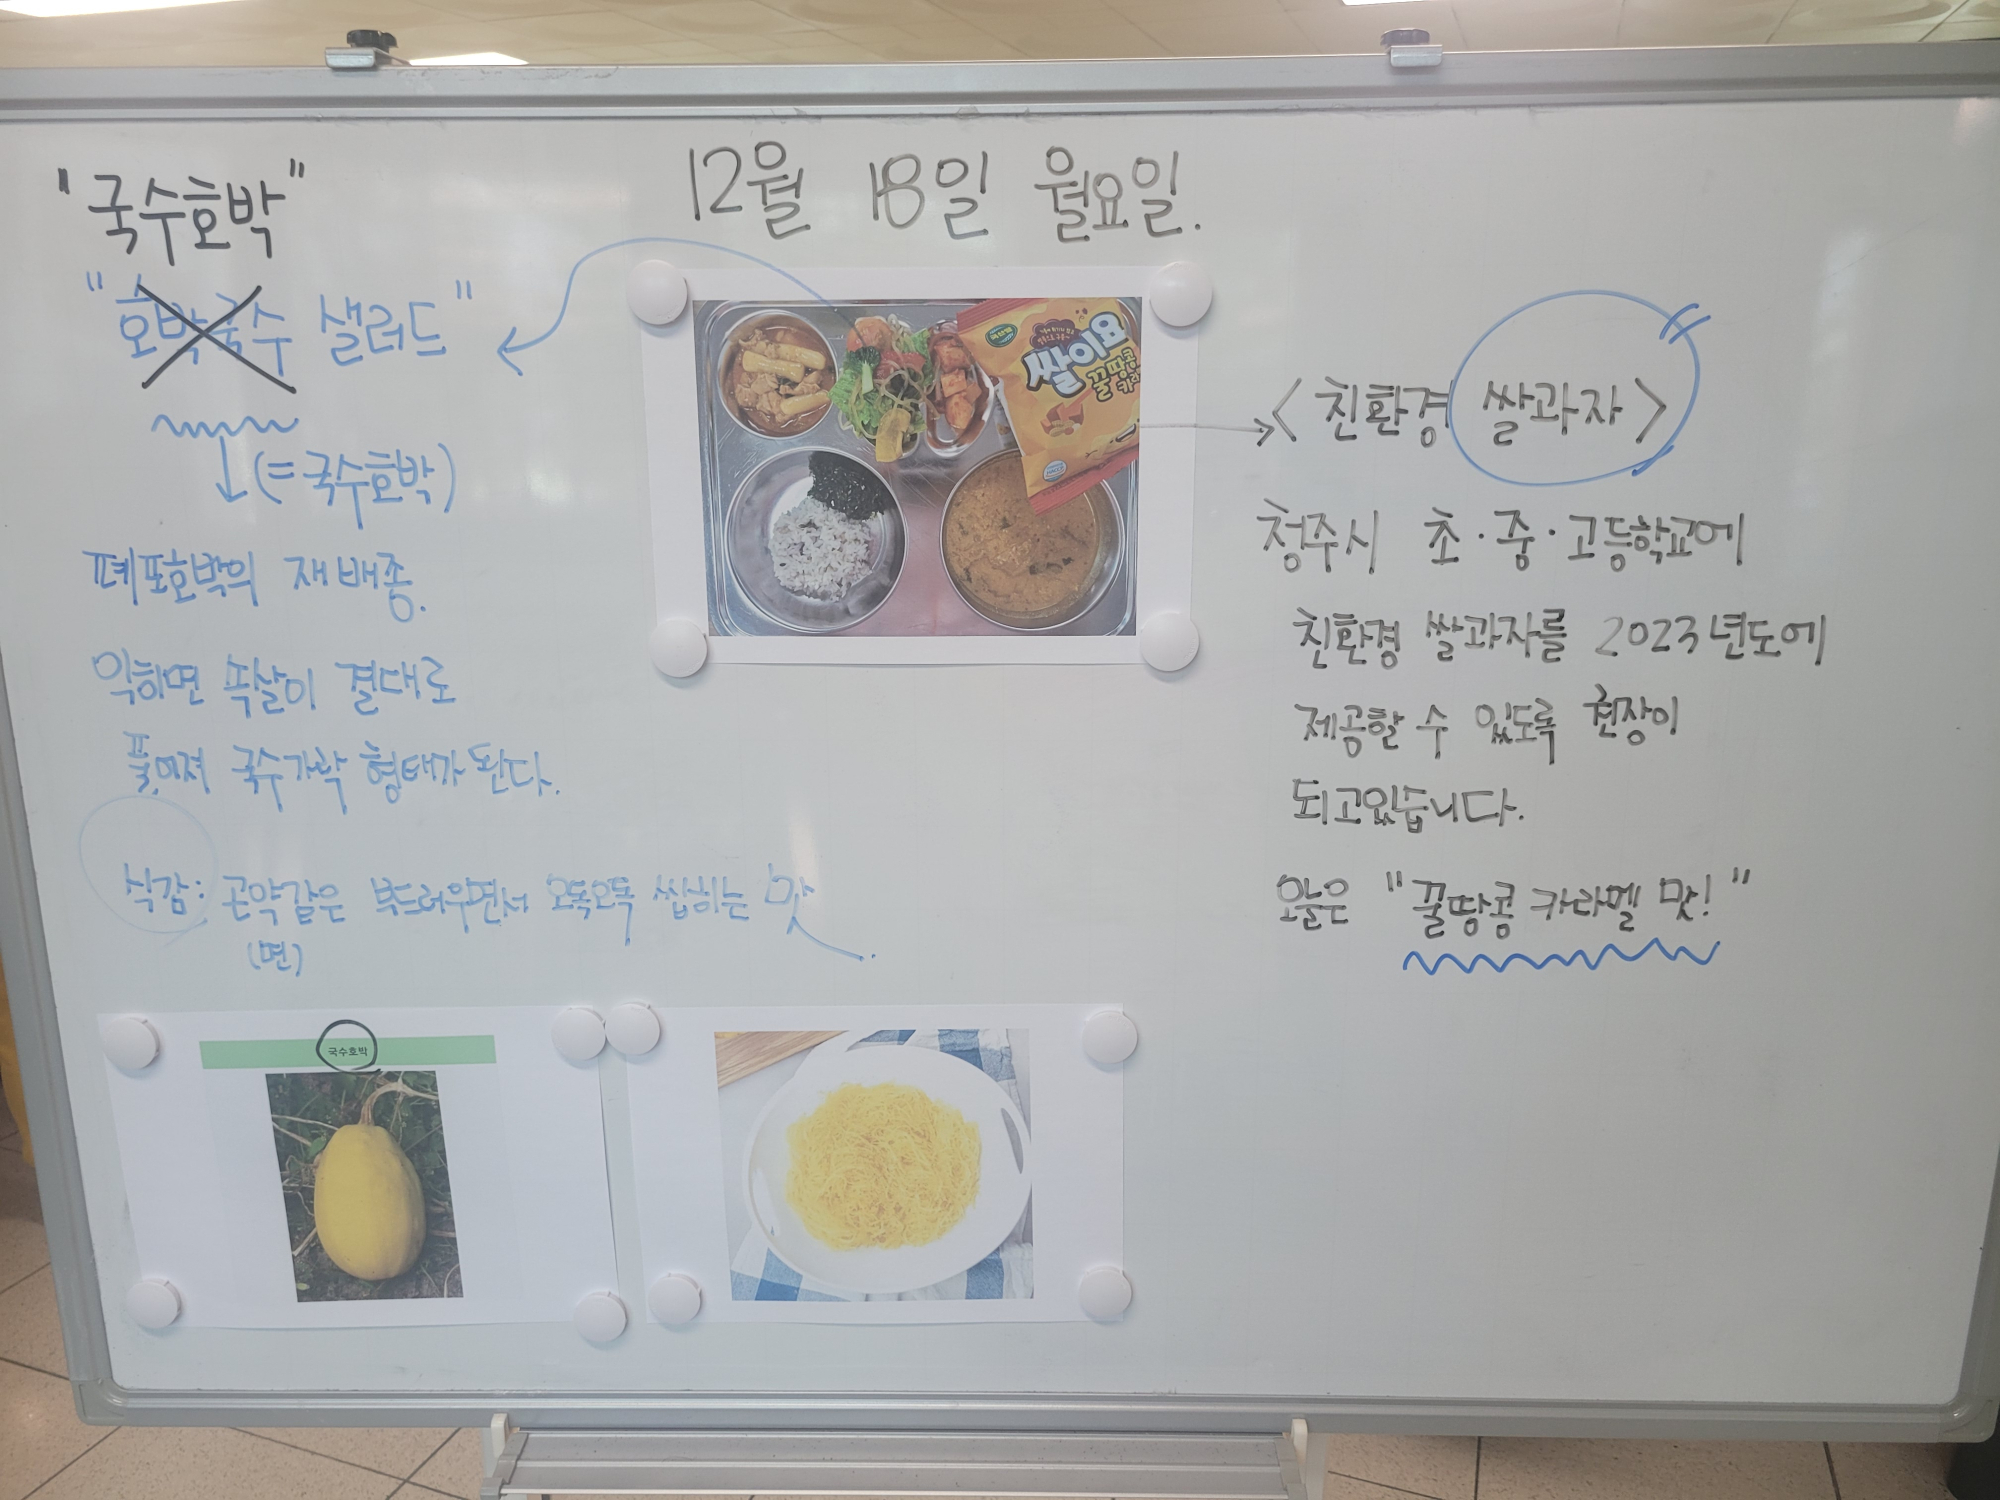 12월 18일 월요일.
"국수호박"
"호박국수 샐러드"
(=국수호박)
페포호박의 재배종.
익히면 쏙살이 결대로
풀어져 국수가락 형태가 된다.
식감: 곤약같은 부드러우면서 오독오독 씹히는 맛
(면)
쌀이요
꿀땅콩
카라
<친환경 쌀과자>
청주시 초·중·고등학교에
친환경 쌀과자를 2023년도에
제공할 수 있도록 현장이
되고있습니다.
오늘은 "꿀땅콩 카라멜 맛!"
국수호박